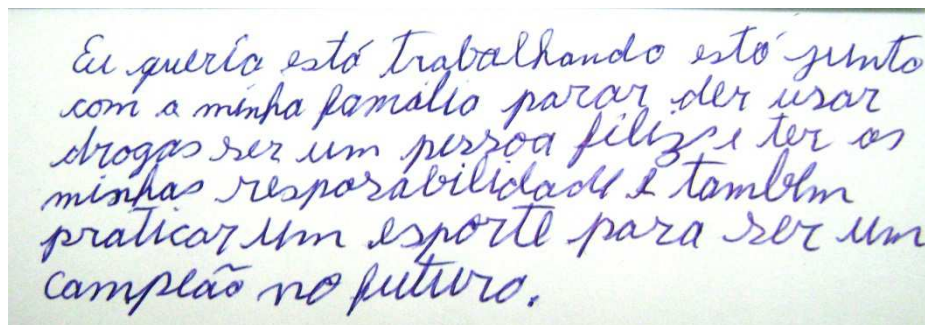 Eu queria está trabalhando está junto
com a minha familio parar der usar
drogas ser um pessoa filiz e ter as
minhas resposabilidade e também
praticar um esporte para ser um
campeão no futuro.